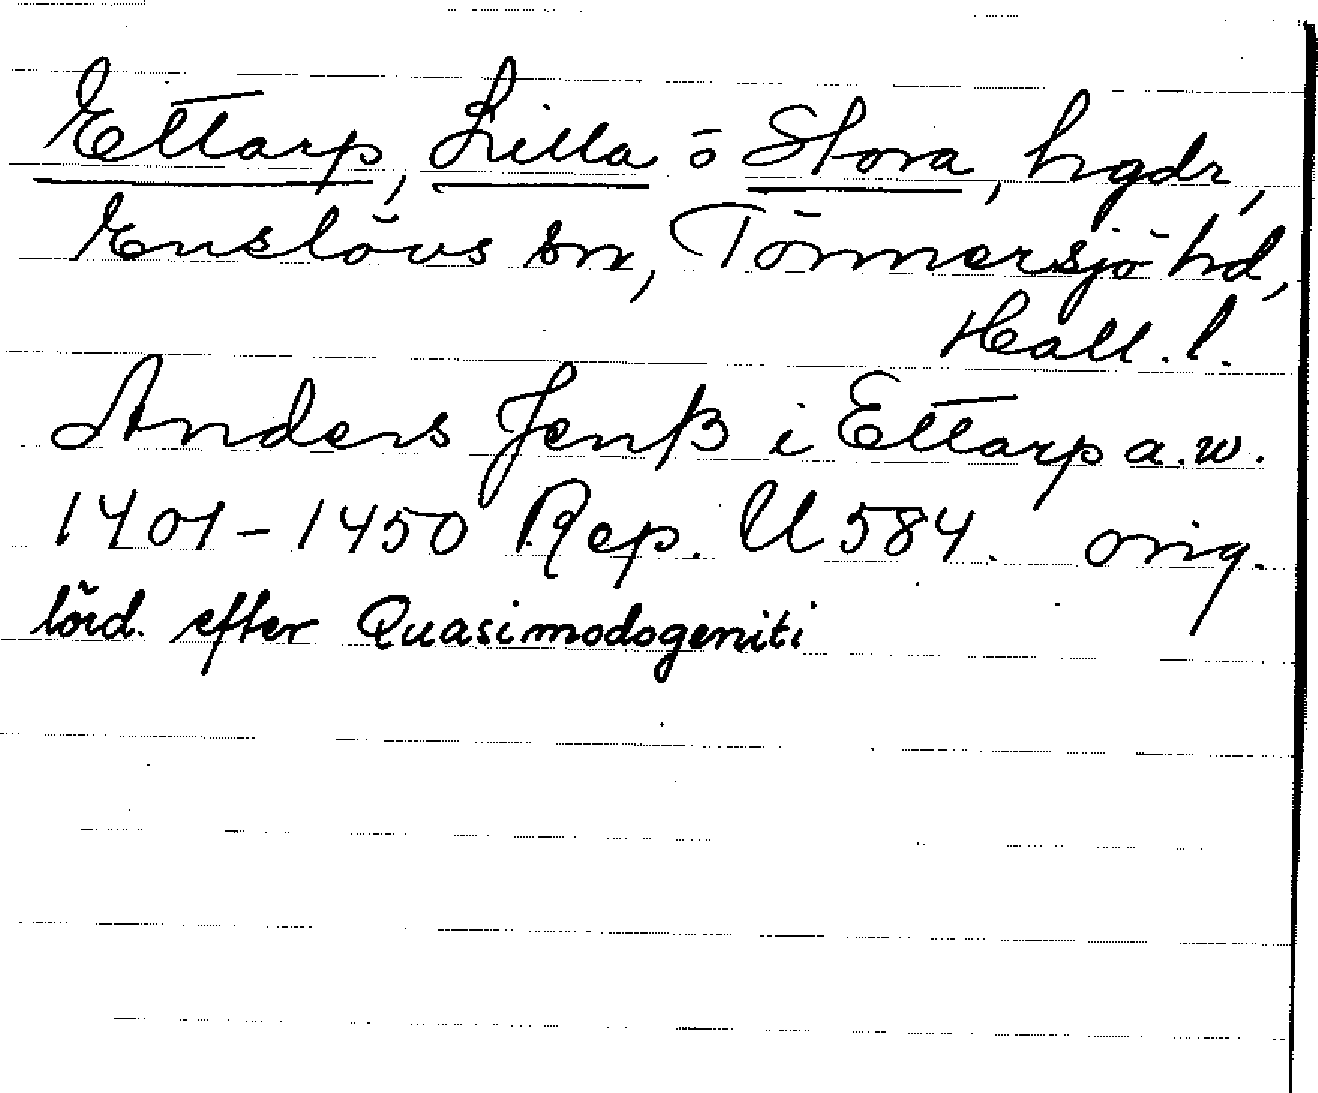 Ettarp, Lilla o Stora, hgdr,
Enslövs sn, Tönnersjö hd,
Hall. l.
Anders Jenß i Ettarp a.w.
1401-1450 Rep. U 584. orig.
lörd. efter Quasimodogeniti